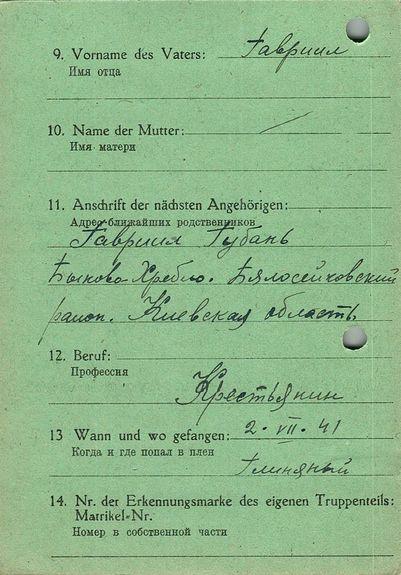 9. Vorname des Vaters: Гавриил
Имя отца
10. Name der Mutter: —
Имя матери
11. Anschrift der nächsten Angehörigen:
Адрес ближайших родственников
Гавриил Губань
Быково Хребло. Бялосейковский
район. Киевская область
12. Beruf:
Профессия
Крестьянин
13 Wann und wo gefangen: 2. VII. 41
Когда и где попал в плен
Глиняный
14. Nr. der Erkennungsmarke des eigenen Truppenteils:
Matrikel-Nr.
Номер в собственной части